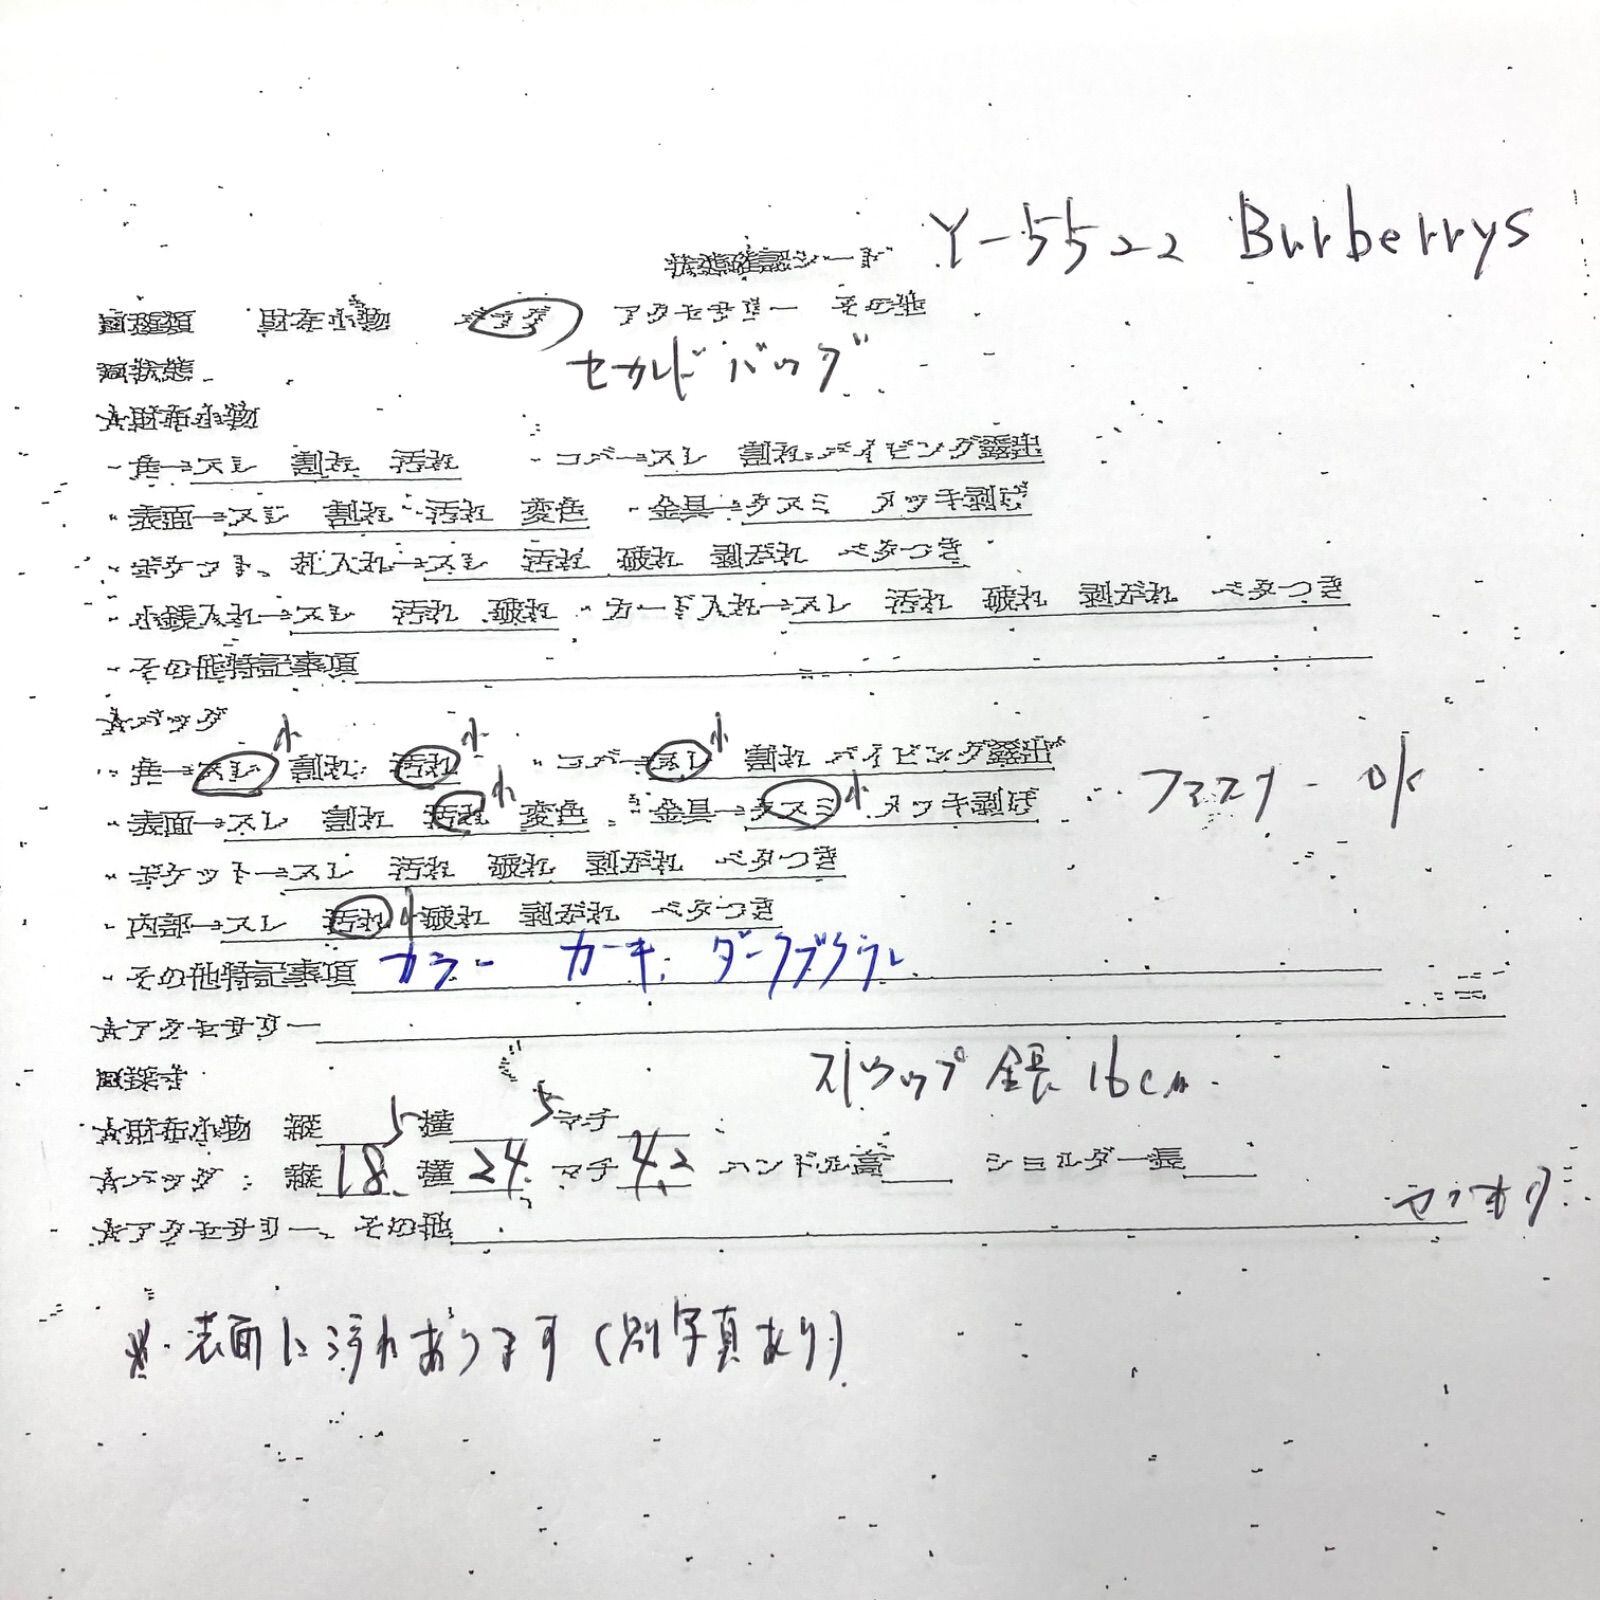 状態確認シート Y-5522 Burberrys
回種類 財布小物 バッグ アクセサリー その他
回状態 セカンドバッグ
★財布小物
・角→スレ 割れ 汚れ ・コバ→スレ 割れ パイピング露出
・表面→スレ 割れ 汚れ 変色 ・金具→クスミ メッキ剥げ
・ポケット、札入れ→スレ 汚れ 破れ 剥がれ ベタつき
・小銭入れ→スレ 汚れ 破れ ・カード入れ→スレ 汚れ 破れ 剥がれ ベタつき
・その他特記事項
★バッグ
・角→スレ小 割れ 汚れ小 ・コバ→スレ小 割れ パイピング露出
・表面→スレ 割れ 汚れ小 変色 ・金具→クスミ小 メッキ剥げ ファスナー OK
・ポケット→スレ 汚れ 破れ 剥がれ ベタつき
・内部→スレ 汚れ小 破れ 剥がれ ベタつき
・その他特記事項 カラー カーキ. ダークブラウン
★アクセサリー
回採寸 ストラップ 全長 16cm
★財布小物 縦 横 マチ
★バッグ : 縦18.5 横24.5 マチ4.2 ハンドル高 ショルダー長
★アクセサリー、その他
※表面に汚れあります(別写真あり)